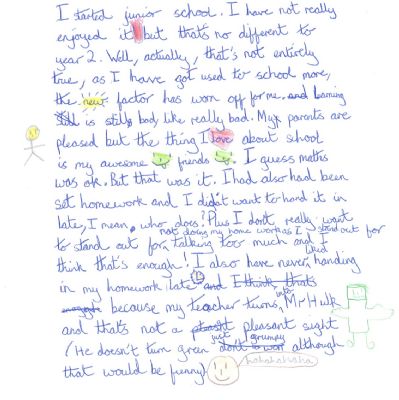 I started junior school. I have not really
enjoyed it but that's no different to
year 2. Well, actually, that's not entirely
true, as I have got used to school more,
the new factor has won off for me. and Learning
is still bad, like really bad. My parents are
pleased but the thing I love about school
is my awesome friends. I guess maths
was ok. But that was it. I had also had been
set homework and I didn't want to hand it in
late, I mean, who does? Plus I don't really want
not doing my home work as I stand out for
to stand out for, talking too much and I
liked
think that's enough! I also have never handing
in my homework late and I think that's
enough because my teacher turns into Mr Hulk
and that's not a pleasnt pleasent sight
just grumpy
(He doesn't turn green although
that would be funny) hahahahaha